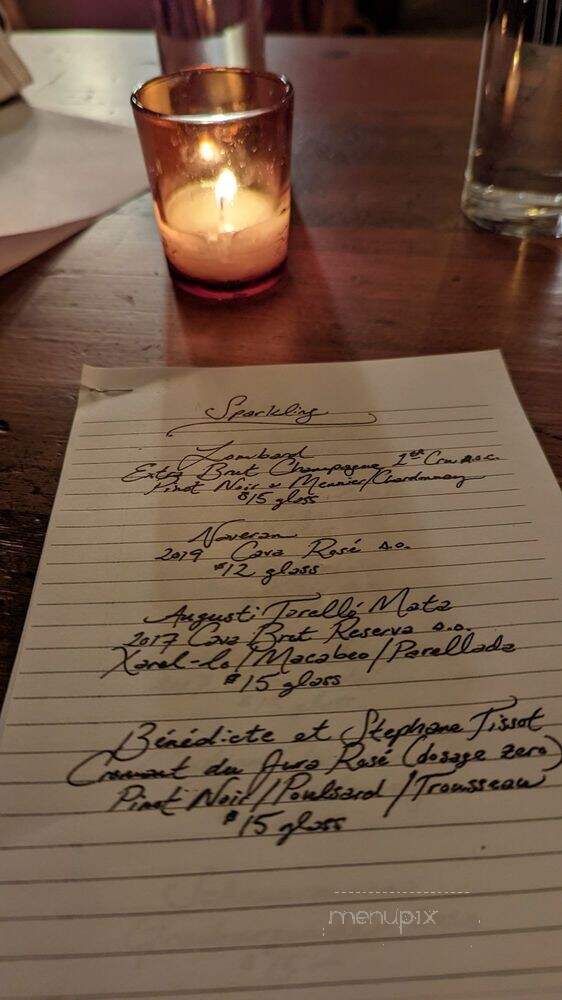 Sparkling
Lombard
Extra Brut Champagne 1er Cru a.o.c.
Pinot Noir & Meunier/Chardonnay
$15 glass
Naveran
2019 Cava Rosé d.o.
$12 glass
Augusti Torelló Mata
2017 Cava Brut Reserva d.o.
Xarel-lo/Macabeo/Parellada
$15 glass
Bénédicte et Stephane Tissot
Cremant du Jura Rosé (dosage zero)
Pinot Noir/Poulsard/Trousseau
$15 glass
menupix